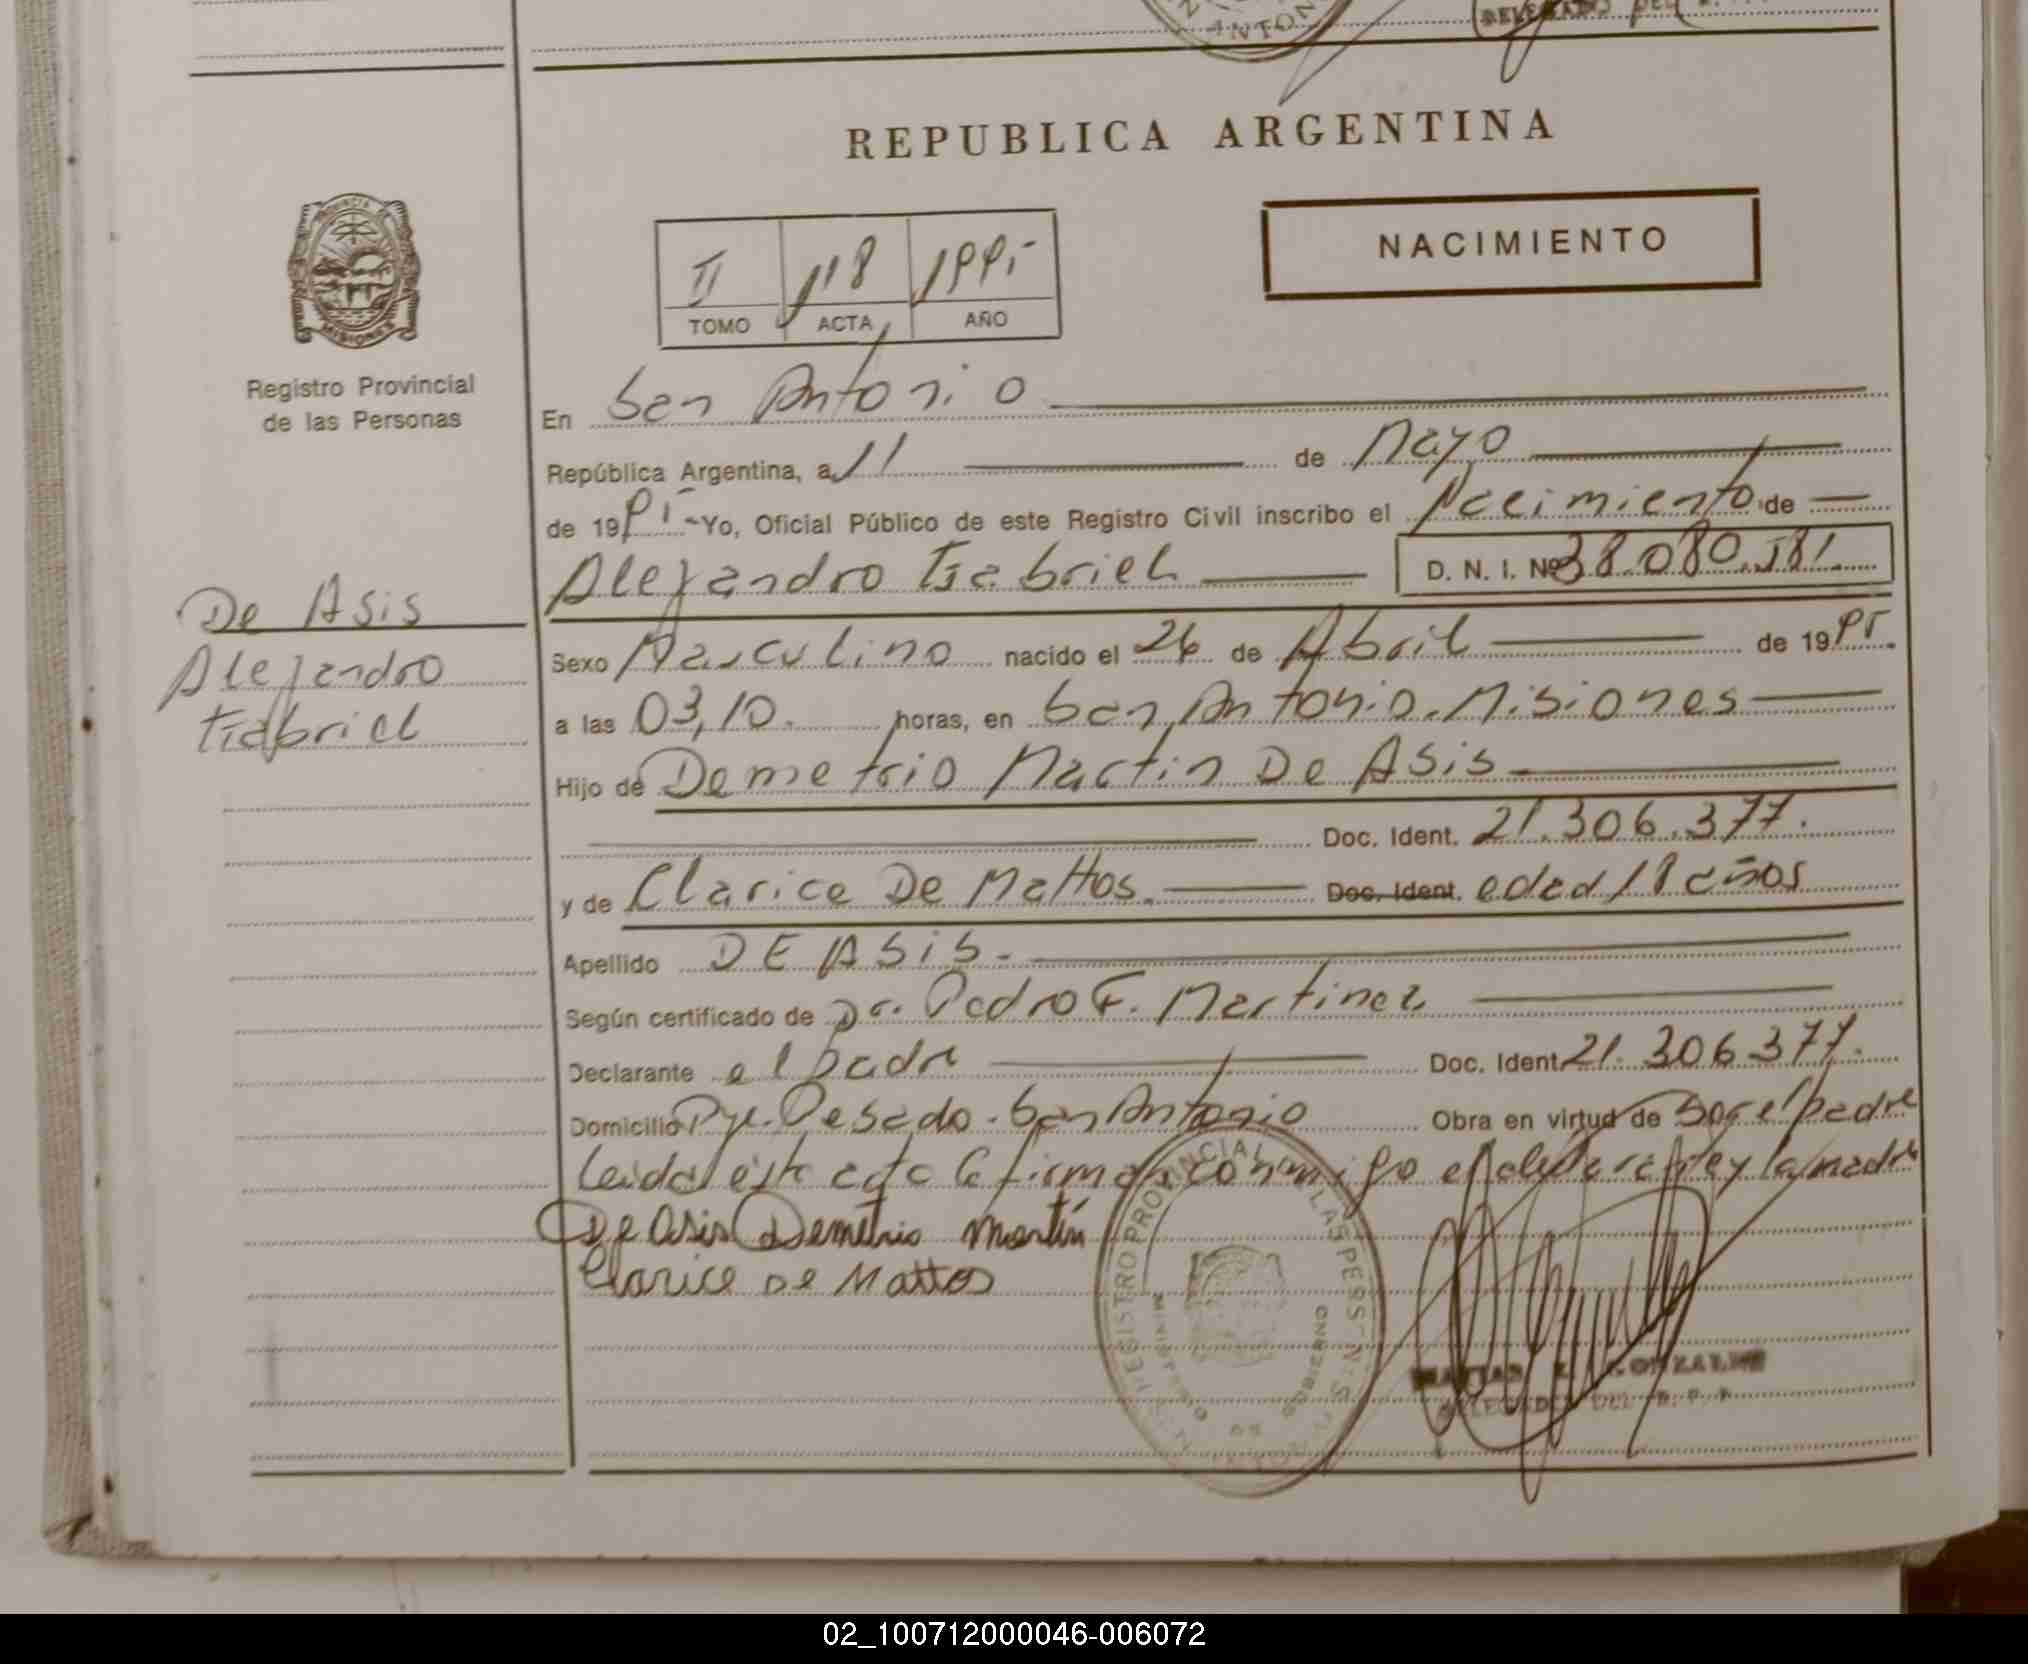 ANTON
DELEGADO DEL R.
REPUBLICA ARGENTINA
NACIMIENTO
II 118 1995.-
TOMO ACTA AÑO
PROVINCIA DE MISIONES
Registro Provincial
de las Personas
De Asis
Alejandro
Gabriel
En San Antonio
República Argentina, a 11 de Mayo
de 1995 - Yo, Oficial Público de este Registro Civil inscribo el Nacimiento de
Alejandro Gabriel D. N. I. Nº 38.080.581.
Sexo Masculino nacido el 26 de Abril de 1995.
a las 03,10. horas, en San Antonio. Misiones
Hijo de Demetrio Martin De Asis
Doc. Ident. 21.306.377.
y de Clarice De Mattos. Doc. Ident. edad 18 años
Apellido DE ASiS.
Según certificado de Dr. Pedro F. Martinez
Declarante el padre Doc. Ident. 21.306.377.
Domicilio Pje. Pesado. San Antonio Obra en virtud de Ser el padre
Leida esta acta la firman conmigo el declarante y la madre
De Asis Demetrio Martín
Clarice De Mattos
REGISTRO PROVINCIAL DE LAS PERSONAS
MINISTERIO DE GOBIERNO
MATIAS GONZALEZ
DELEGADO DEL R. P. P.
02_100712000046-006072